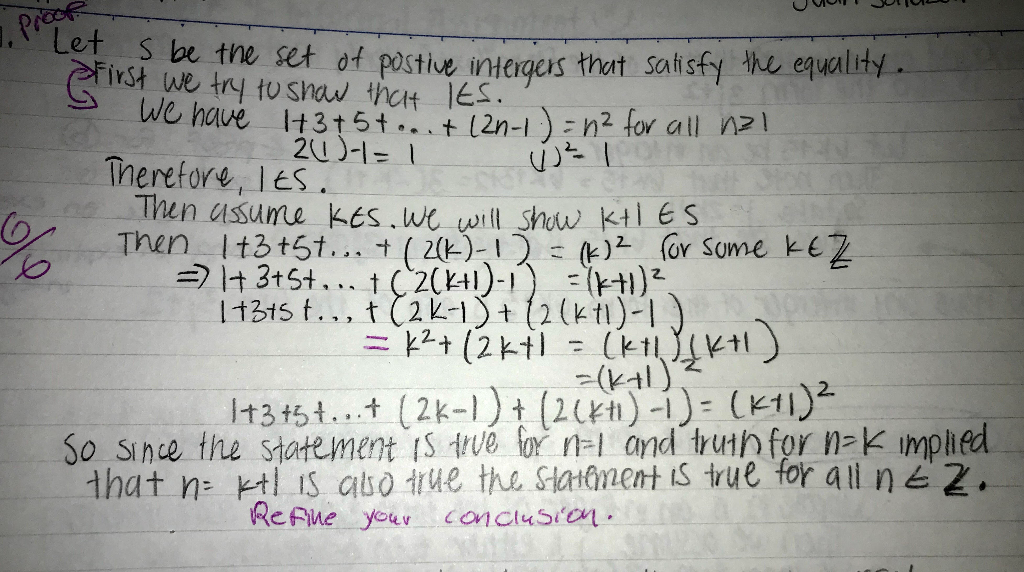 1. Proof
Let S be the set of postive intergers that satisfy the equality.
First we try to show that 1∈S.
We have 1+3+5+...+(2n-1)=n² for all n≥1
2(1)-1=1 (1)²=1
Therefore, 1∈S.
Then assume k∈S. We will show k+1∈S
6/6
Then 1+3+5+...+(2(k)-1) = (k)² for some k∈Z
⇒ 1+3+5+...+(2(k+1)-1) =(k+1)²
1+3+5+...+(2k-1)+(2(k+1)-1)
= k²+(2k+1 = (k+1)(k+1)
=(k+1)²
1+3+5+...+(2k-1)+(2(k+1)-1)=(k+1)²
So since the statement is true for n=1 and truth for n=k implied
that n= k+1 is also true the statement is true for all n∈Z.
Refine your conclusion.